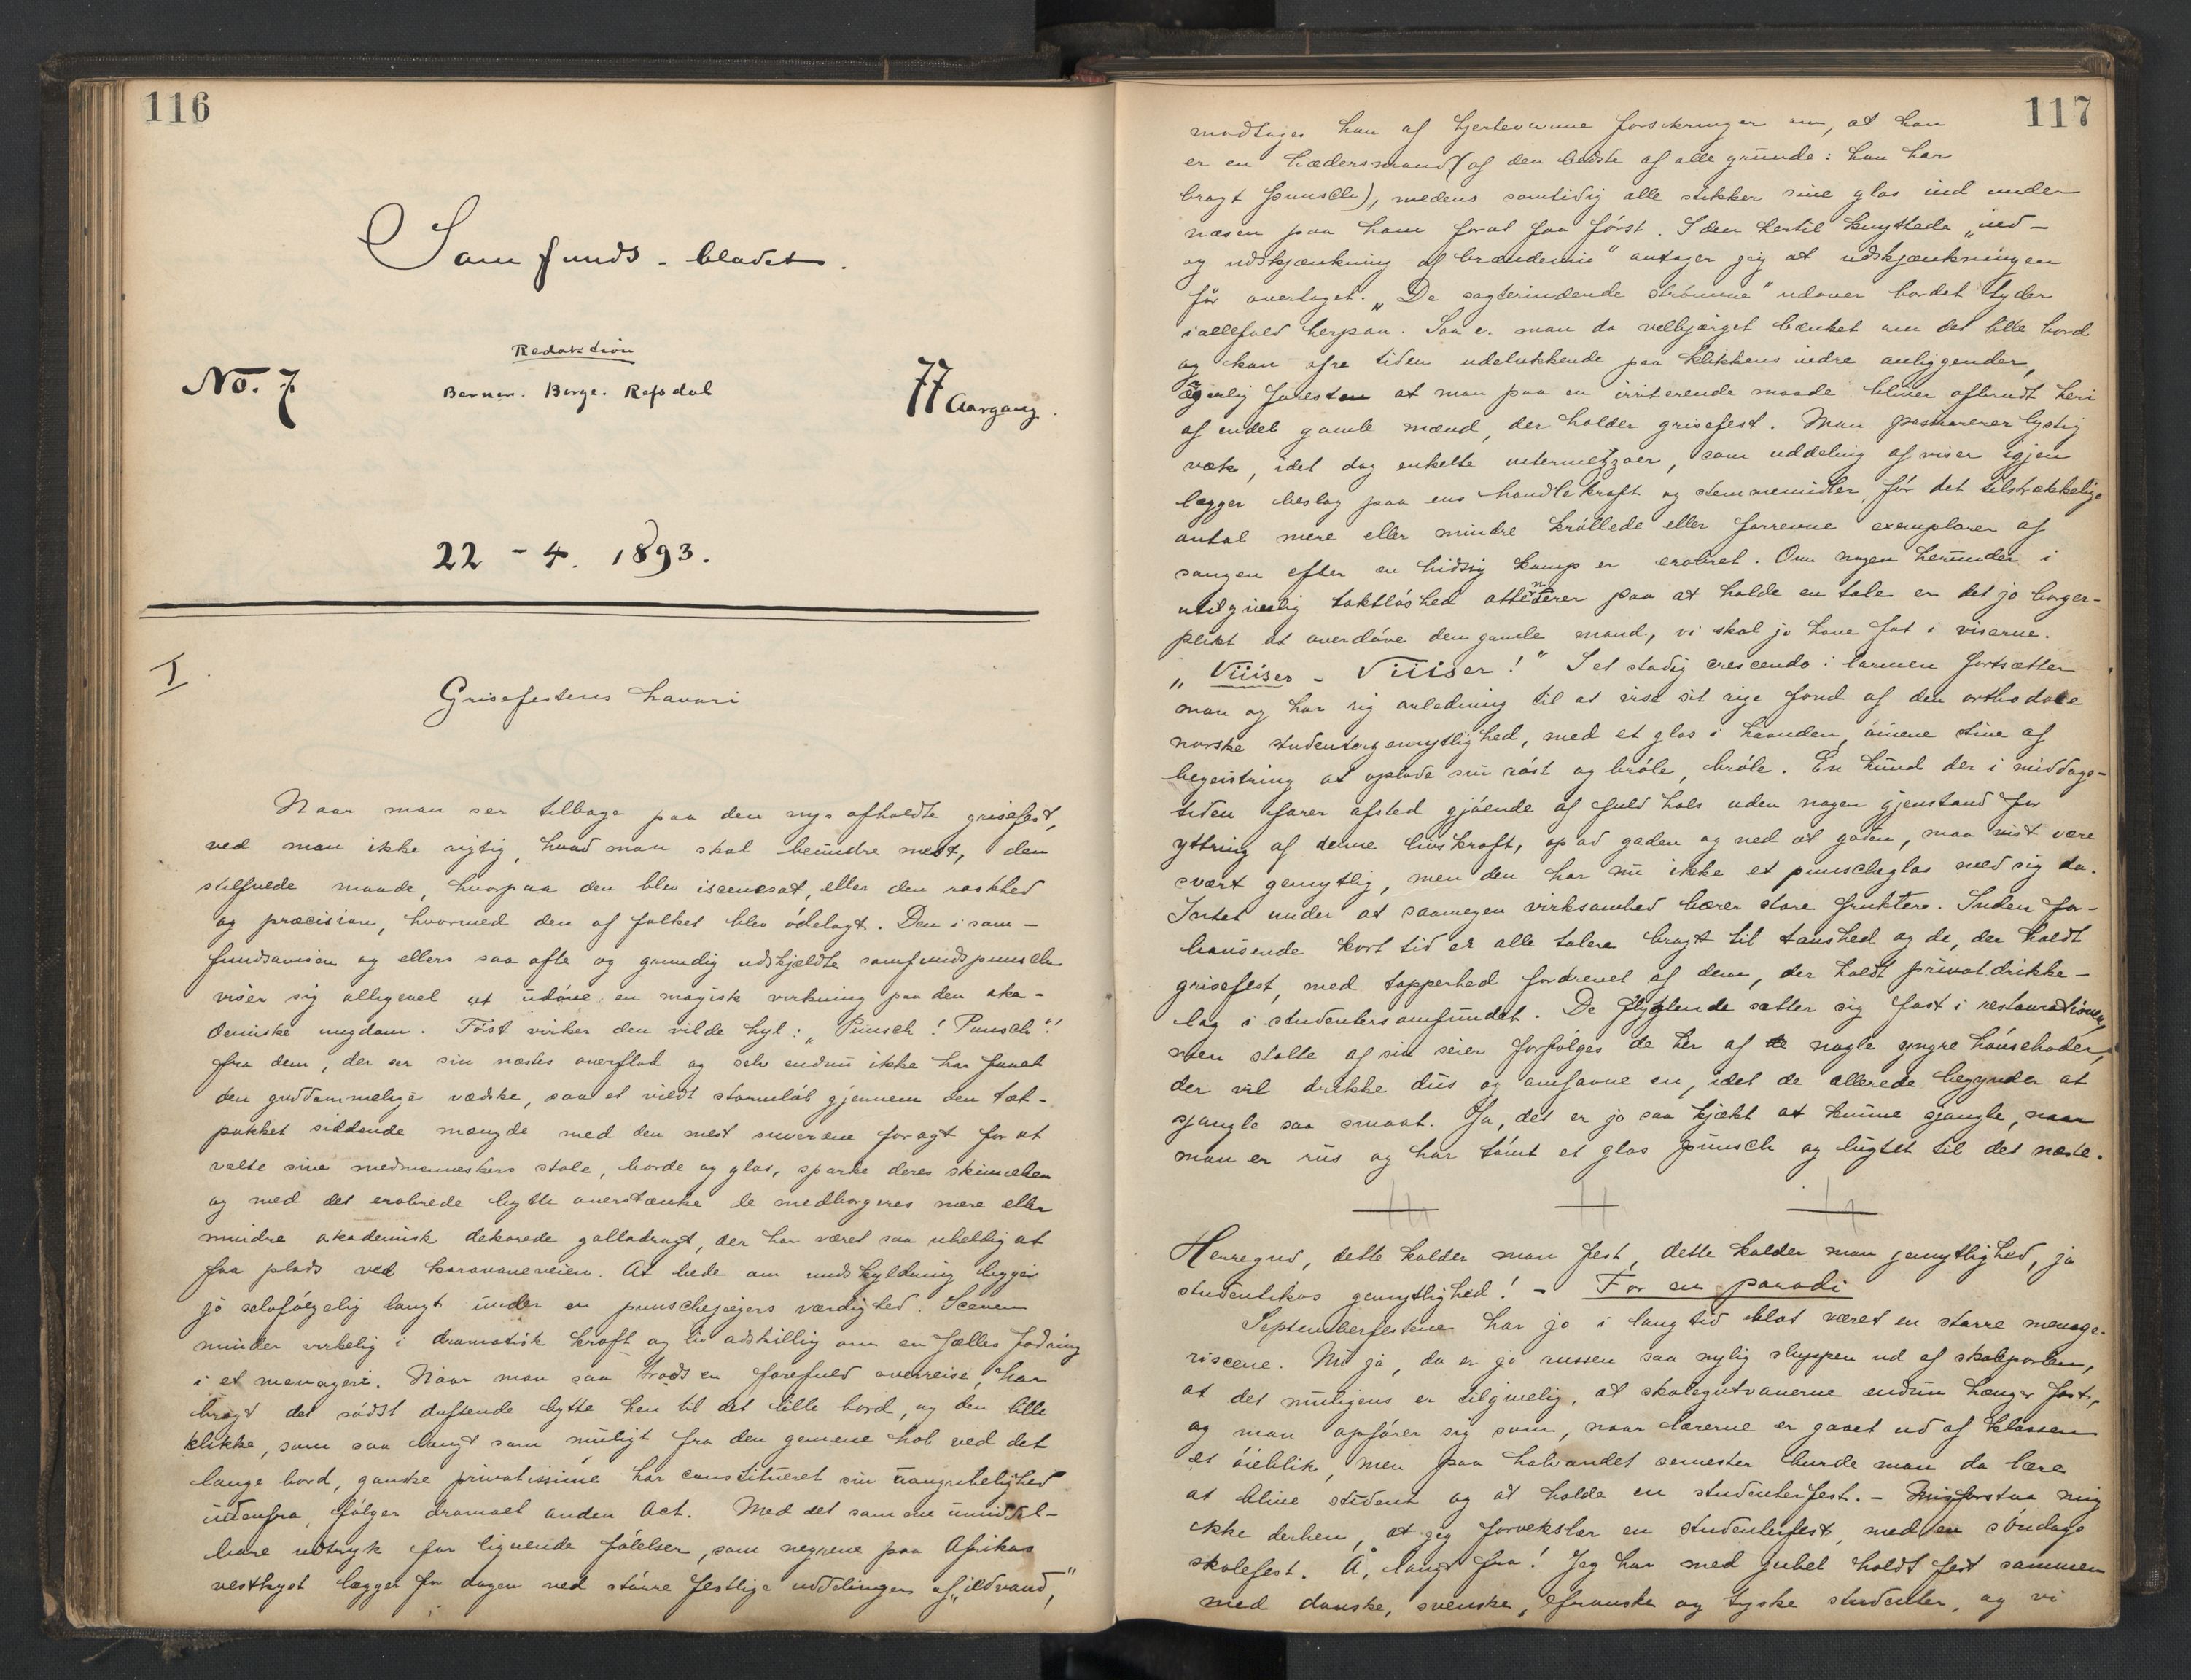 116
Samfunds-bladet.
Redaktion
No. 7
Berner. Borge. Refsdal
77 Aargang.
22 - 4. 1893.
I.
Grisefestens havari
Naar man ser tilbage paa den nys afholdte grisefest,
ved man ikke rigtig, hvad man skal beundre mest, den
stilfulde maade, hvorpaa den blev iscenesat, eller den raskhed
og præcision, hvormed den af folket blev ødelagt. Den i sam-
fundsavisen og ellers saa ofte og grundig udskjældte samfundspunsch
viser sig alligevel at udøve en magisk virkning paa den aka-
demiske ungdom. Først virker den vilde hyl: „Punsch! Punsch"!
fra dem, der ser sin næstes overflod og selv endnu ikke har faaet
den guddommelige vædske, saa et vildt stormløb gjennem den tæt-
pakket siddende mængde med den mest suveræne foragt for at
vælte sine medmenneskers stole, borde og glas, sparke deres skinneben
og med det erobrede bytte overstænke de medborgeres mere eller
mindre akademisk dekorede galladragt, der har været saa uheldig at
faa plads ved karavaneveien. At bede om undskyldning ligger
jo selvfølgelig langt under en punschejægers værdighed. Scenen
minder virkelig i dramatisk kraft og liv adskillig om en fælles fodring
i et menageri. Naar man saa trods en farefuld overreise, har
bragt det sødt duftende bytte hen til det lille bord, og den lille
klikke, som saa langt som muligt fra den gemene hob ved det
lange bord, ganske privatissime har constitueret sin uangribelighed
udenfra, følger dramaet anden Act. Med det samme umiddel-
bare udtryk for lignende følelser, som negrene paa Afrikas
vestkyst lægger for dagen ved større festlige uddelinger af „ildvand",
117
modtages han af hjertevarme forsikringer om, at han
er en hædersmand (af den bedste af alle grunde: han har
bragt punsch), medens samtidig alle stikker sine glas ind under
næsen paa ham forat faa først. I den hertil knyttede „ind-
og udskjænkning af brændevin" antager jeg at udskjænkningen
får overtaget. „De sagterindende strømme" udover bordet tyder
iallefald herpaa. Saa er man da velbjærget bænket om det lille bord
og kan ofre tiden udelukkende paa klikkens indre anliggender,
ærgerlig forresten at man paa en irriterende maade bliver afbrudt heri
af endel gamle mænd, der holder grisefest. Man passiarer lystig
væk, idet dog enkelte intermezzoer, som uddeling af viser igjen
lægger beslag paa ens handlekraft og stemmemidler, før det tilstrækkelige
antal mere eller mindre krøllede eller forrevne exemplarer af
sangen efter en hidsig kamp er erobret. Om nogen herunder i
utilgivelig taktløshed attenterer paa at holde en tale er det jo borger-
plikt at overdøve den gamle mand, vi skal jo have fat i viserne.
„Viiiser - Viiiser!" I et stadig crescendo i larmen fortsætter
man og har rig anledning til at vise sit rige fond af den orthodoxe
norske studentergemytlighed, med et glas i haanden, øinene stive af
begeistring at oplade sin røst og brøle, brøle. En hund der i middags-
tiden farer afsted gjøende af fuld hals uden nogen gjenstand for
yttring af denne livskraft, op ad gaden og ned at gaden, maa vist være
svært gemytlig, men den har nu ikke et punscheglas med sig da.
Intet under at saamegen virksomhed bærer store frukter. Inden for-
bausende kort tid er alle talere bragt til taushed og de, der holdt
grisefest, med tapperhed fordrevet af dem, der holdt privat drikke-
lag i studentersamfundet. De flygtende sætter sig fast i restaurationen,
men stolte af sin seier forfølges de her af nogle yngre hønsehoder,
der vil drikke dus og omfavne en, idet de allerede begynder at
sjangle saa smaat. Ja, det er jo saa kjækt at kunne sjangle, naar
man er rus og har tømt et glas punsch og lugtet til det næste.
Herregud, dette kalder man fest, dette kalder man gemytlighed, ja
studentikos gemytlighed! - For en parodi
Septemberfestene har jo i lang tid blot været en større menage-
riscene. Nu ja, da er jo russen saa nylig sluppen ud af skoleporten,
at det muligens er tilgivelig, at skolegutvanerne endnu hænger fast,
og man opfører sig som, naar lærerne er gaaet ud af klassen
et øieblik, men paa halvandet semester burde man da lære
at blive student og at holde en studenterfest. - Misforstaa mig
ikke derhen, at jeg forveksler en studenterfest, med en søndags
skolefest. Å, langt fra! Jeg har med jubel holdt fest sammen
med danske, svenske, franske og tyske studenter, og vi